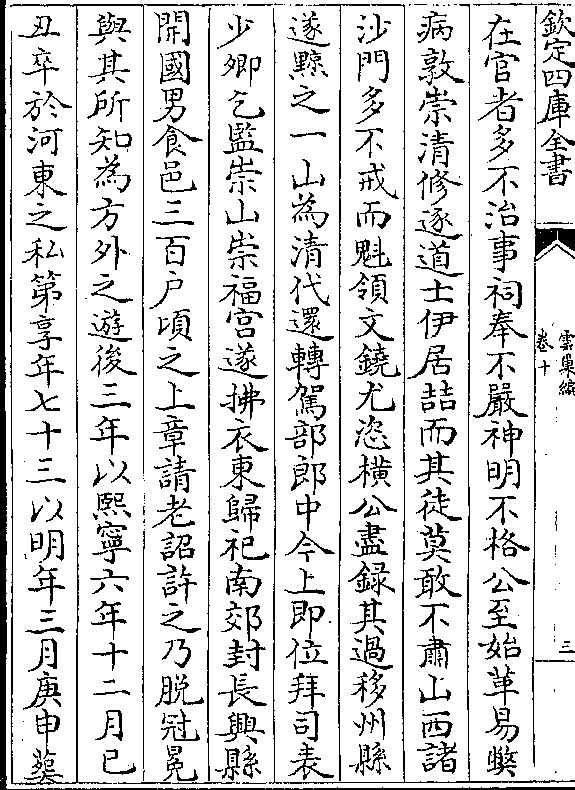 欽定四庫全書
雲巢編
卷十
三
在官者多不治事祠奉不嚴神明不格公至始革易弊
病敦崇清修逐道士伊居喆而其徒莫敢不肅山西諸
沙門多不戒而魁領文鐃尤恣橫公盡録其過移州縣
遂黥之一山為清代還轉駕部郎中今上即位拜司表
少卿乞監崇山崇福宫遂拂衣東歸祀南郊封長興縣
開國男食邑三百户頃之上章請老詔許之乃脱冠冕
與其所知為方外之遊後三年以熙寧六年十二月已
丑卒於河東之私第享年七十三以明年三月庚申葬